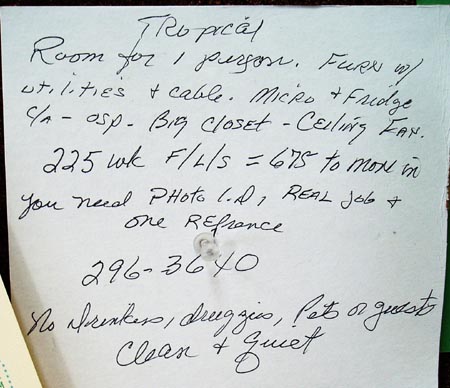 TRopical
Room for 1 person. FURN w/
utilities + cable. Micro + Fridge
C/A - osp - Big closet - Ceiling Fan.
225 wk F/L/S = 675 to move in
you need PHoto I.D, REAL job +
one REfrance
296-3640
No drinkers, druggies, Pets or guests
Clean + Quiet